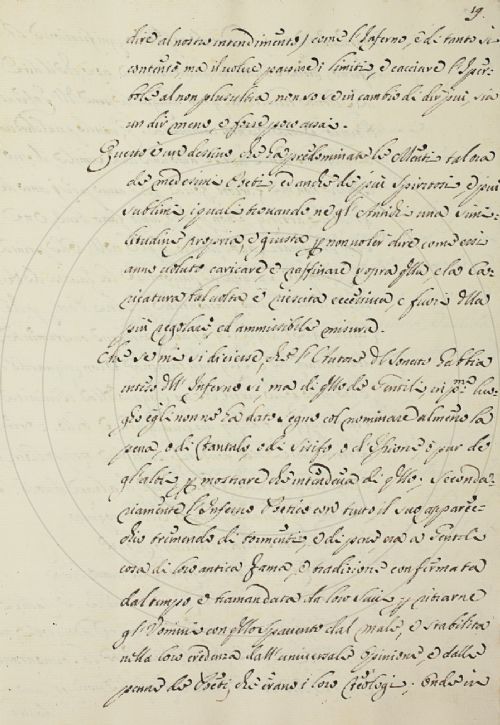 19.
dire al nostro intendimento) come l'Inferno, è di tanto si
contento, ma il voler passare i limiti, e cacciare l'Iper-
bole al non plus ultra, non so se in cambio di dir più, sia
un dir meno, e forse poco assai.
Questo è un destino, che ha predominate le Menti talora
de medesimi Poeti, ed anche de più spiritosi, e più
sublimi, i quali trovando negl'Antichi una simi-
litudine propria, e giusta p non voler dire come essi
anno voluto caricare, e raffinare sopra qlla, e la Ca-
ricatura talvolta è riescita eccessiva, e fuori dlla
più regolare, ed ammissibile misura.
Che se mi si dicesse, che l'Autore dl Sonetto habbia
inteso dll'Inferno sì, ma di qllo de Gentili in pmo luo-
go egli non ne ha dato segno col nominare almeno la
pena, o di Tantalo, o di Sisifo, o d'Issione, o pur de
gl'altri p mostrare che intendeva di qllo; Seconda-
riamente l'Inferno Poetico con tutto il suo apparec-
chio tremendo di tormenti, e di pene, era a Gentili
cosa di loro antica Fama, e tradizione confirmata
dal tempo, e tramandata da loro Savi p ritrarne
gl'Uomini con qllo Spavento dal male, e stabilita
nella loro credenza dall'universale Opinione, e dalle
penne de Poeti, che erano i loro Teologi; onde in